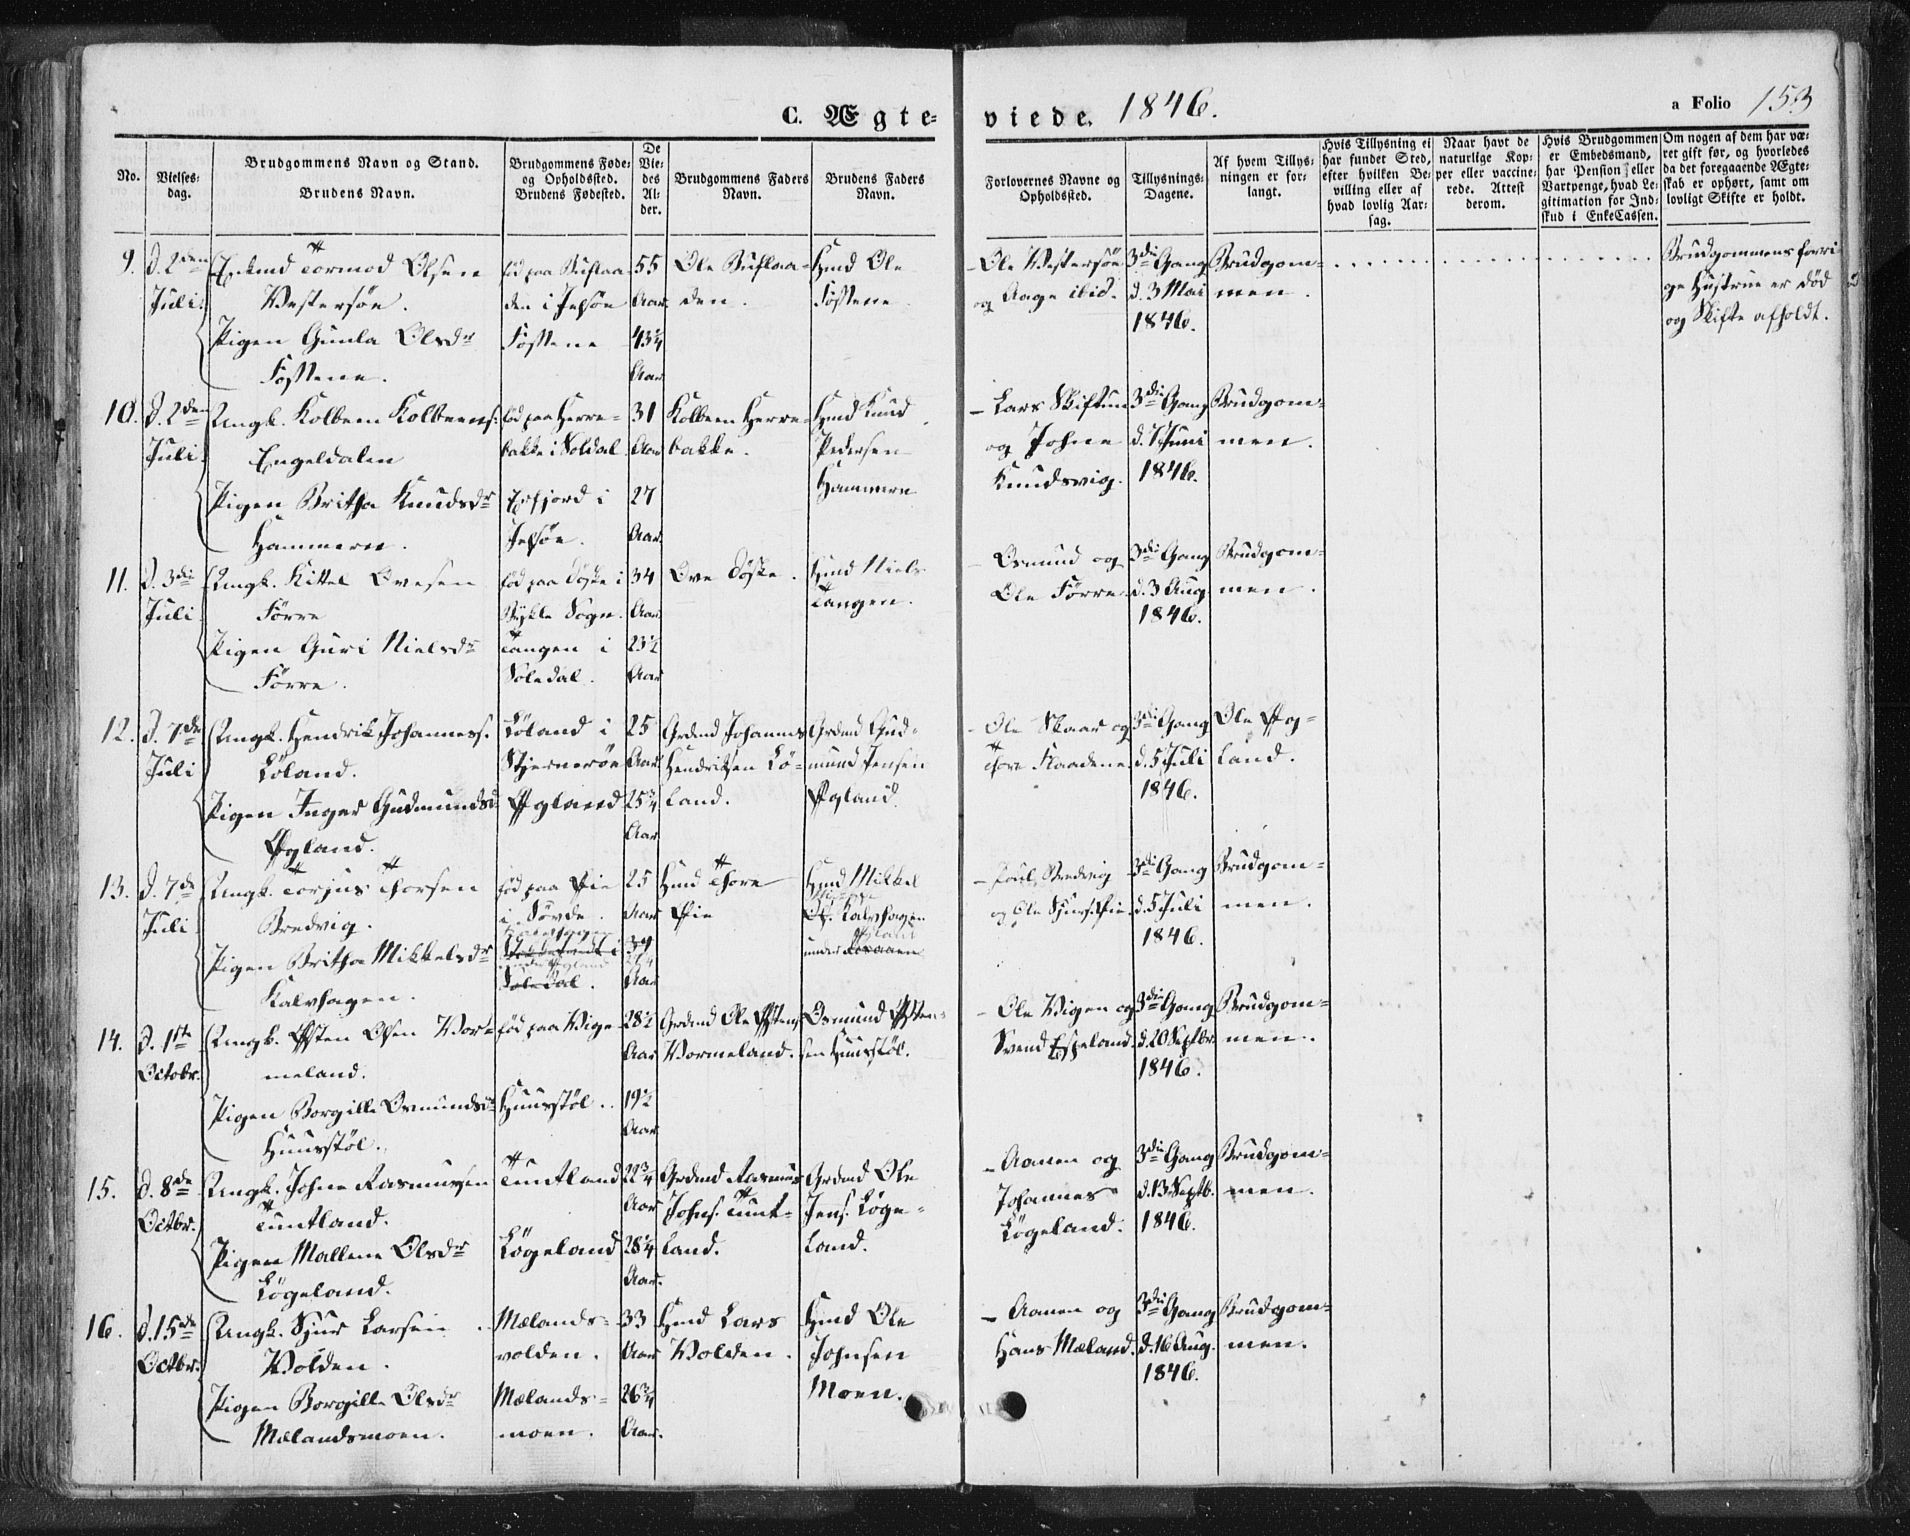 C. Ægte-
viede. 1846.
a Folio 153
No.
Vielses-
dag.
Brudgommens Navn og Stand.
Brudens Navn.
Brudgommens Føde-
og Opholdssted.
Brudens Fødested.
De
Vie-
des
Al-
der.
Brudgommens Faders
Navn.
Brudens Faders
Navn.
Forlovernes Navne og
Opholdssted.
Tillysnings-
Dagene.
Af hvem Tillys-
ningen er for-
langt.
Hvis Tillysning ei
har fundet Sted,
efter hvilken Be-
villing eller af
hvad lovlig Aar-
sag.
Naar havt de
naturlige Kop-
per eller vaccine-
rede. Attest
derom.
Hvis Brudgommen
er Embedsmand,
har Pension eller
Vartpenge, hvad Le-
gitimation for Ind-
skud i EnkeCassen.
Om nogen af dem har væ-
ret gift før, og hvorledes
da det foregaaende Ægte-
skab er ophørt, samt om
lovligt Skifte er holdt.
9.
d. 2den
Juli
Enkemd Tormod Olsen
Westersøe.
Pigen Gunla Olsdr
Fostene.
Jelsøe
Fostene
55
Aar
43¼
Aar
Ole
den.
Hmd Ole
Fostene
Ole Westersøe
og Aage ibid.
3die Gang
d. 3 Mai
1846.
Brudgom-
men.
Brudgommens forri-
ge Hustrue er død
og Skifte afholdt.
10.
d. 2den
Juli
Ungk. Kolbeen Kolbeens.
Engeldalen
Pigen Britha Knudsdr
Hammeren.
født paa Herre-
bakke i Soldal
Erfjord i
Jelsøe.
31
Aar
27
Aar
Kolbeen Herre-
bakke.
Hmd Knud
Pedersen
Hammeren
Lars Skiftun
og Johne
Knudsvig.
3die Gang
d. 7 Juni
1846.
Brudgom-
men.
11.
d. 3die
Juli
Ungk. Kittel Ovesen
Førre
Pigen Guri Nielsdr
Førre.
født paa Døske i
Bykle Sogn.
Tangen i
Soledal.
34
Aar
23½
Aar
Ove Døske.
Hmd Niels
Tangen.
Osmund og
Ole Førre
3die Gang
d. 3 Aug.
1846.
Brudgom-
men.
12.
d. 7de
Juli
Ungk. Hendrik Johanness.
Løland.
Pigen Inger Gudmundsd.
Øgland.
Løland i
Stjernerøe
Øgland
25
Aar
25¾
Aar
Grdmd Johannes
Hendriksen Lø-
land.
Grdmd Gud-
mund Jensen
Øgland
Ole Skaar og
Thore Flaadene.
3die Gang
d. 5 Juli
1846.
Ole Øg-
land.
13.
d. 7de
Juli
Ungk. Torjus Thorsen
Bredvig.
Pigen Britha Mikkelsdr
Kalvhagen.
født paa Øie
i Søvde.
Kalvhagen
under Øgland
Soledal.
25
Aar
34
Aar
Hmd Thore
Øie
Hmd Mikkel
Kalvhagen
Øgland
under
Poul Bredvig
og Ole Sjurs. Øie
3die Gang
d. 5 Juli
1846.
Brudgom-
men.
14.
d. 1ste
Octobr.
Ungk. Østen Olsen Wor-
meland.
Pigen Borgille Osmundsdr
Huusstøl.
født paa Wige
Huusstøl.
28½
Aar
19½
Aar
Grdmd Ole Østens.
Wormeland.
Osmund Østen-
sen Huusstøl.
Ole Wigen og
Svend Espeland.
3die Gang
d. 20 Septbr.
1846.
Brudgom-
men.
15.
d. 8de
Octbr.
Ungk. Johne Rasmussen
Tuntland.
Pigen Mallene Olsdr
Løgeland.
Tuntland
Løgeland
22¾
Aar
28¼
Aar.
Grdmd Rasmus
Johns. Tunt-
land.
Grdmd Ole
Jens. Løge-
land.
Aanen og
Johannes
Løgeland.
3die Gang
d. 13 Septb.
1846.
Brudgom-
men.
16.
d. 15de
Octbr.
Ungk. Sjur Larsen
Wolden.
Pigen Borgille Olsdr
Mælandsmoen.
Mælands-
volden.
Mælands-
moen.
33
Aar
26¾
Aar.
Hmd Lars
Wolden.
Hmd Ole
Johnsen
Moen.
Aanen og
Hans Mæland.
3die Gang
d. 16 Aug.
1846.
Brudgom-
men.